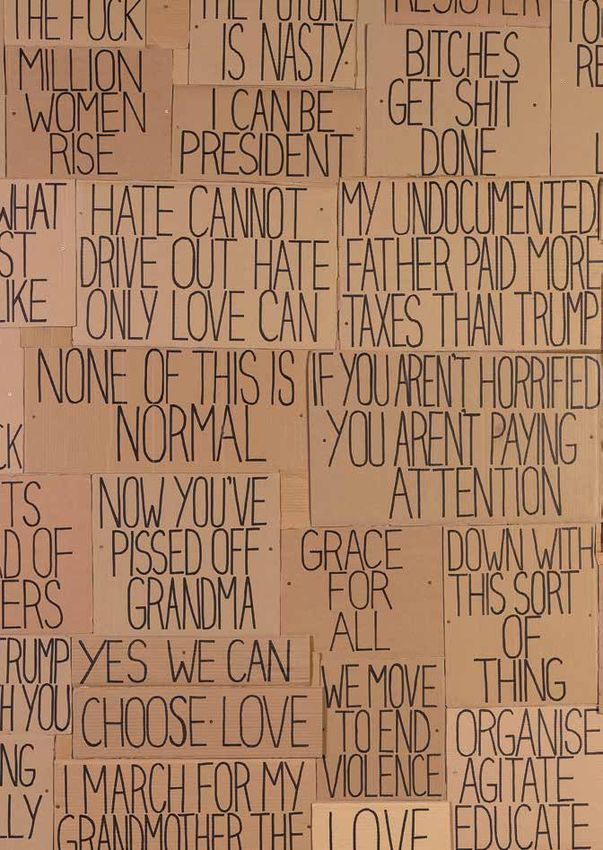 THE FUCK
THE FUTURE
IS NASTY
RESISTER
MILLION
WOMEN
RISE
I CAN BE
PRESIDENT
BITCHES
GET SHIT
DONE
TO
RE
WHAT
ST
LIKE
HATE CANNOT
DRIVE OUT HATE
ONLY LOVE CAN
MY UNDOCUMENTED
FATHER PAID MORE
TAXES THAN TRUMP
CK
NONE OF THIS IS
NORMAL
IF YOU AREN'T HORRIFIED
YOU AREN'T PAYING
ATTENTION
TS
D OF
ERS
NOW YOU'VE
PISSED OFF
GRANDMA
GRACE
FOR
ALL
DOWN WITH
THIS SORT
OF
THING
TRUMP
H YOU
YES WE CAN
CHOOSE LOVE
WE MOVE
TO END
VIOLENCE
ORGANISE
AGITATE
EDUCATE
NG
LLY
I MARCH FOR MY
GRANDMOTHER THE
LOVE